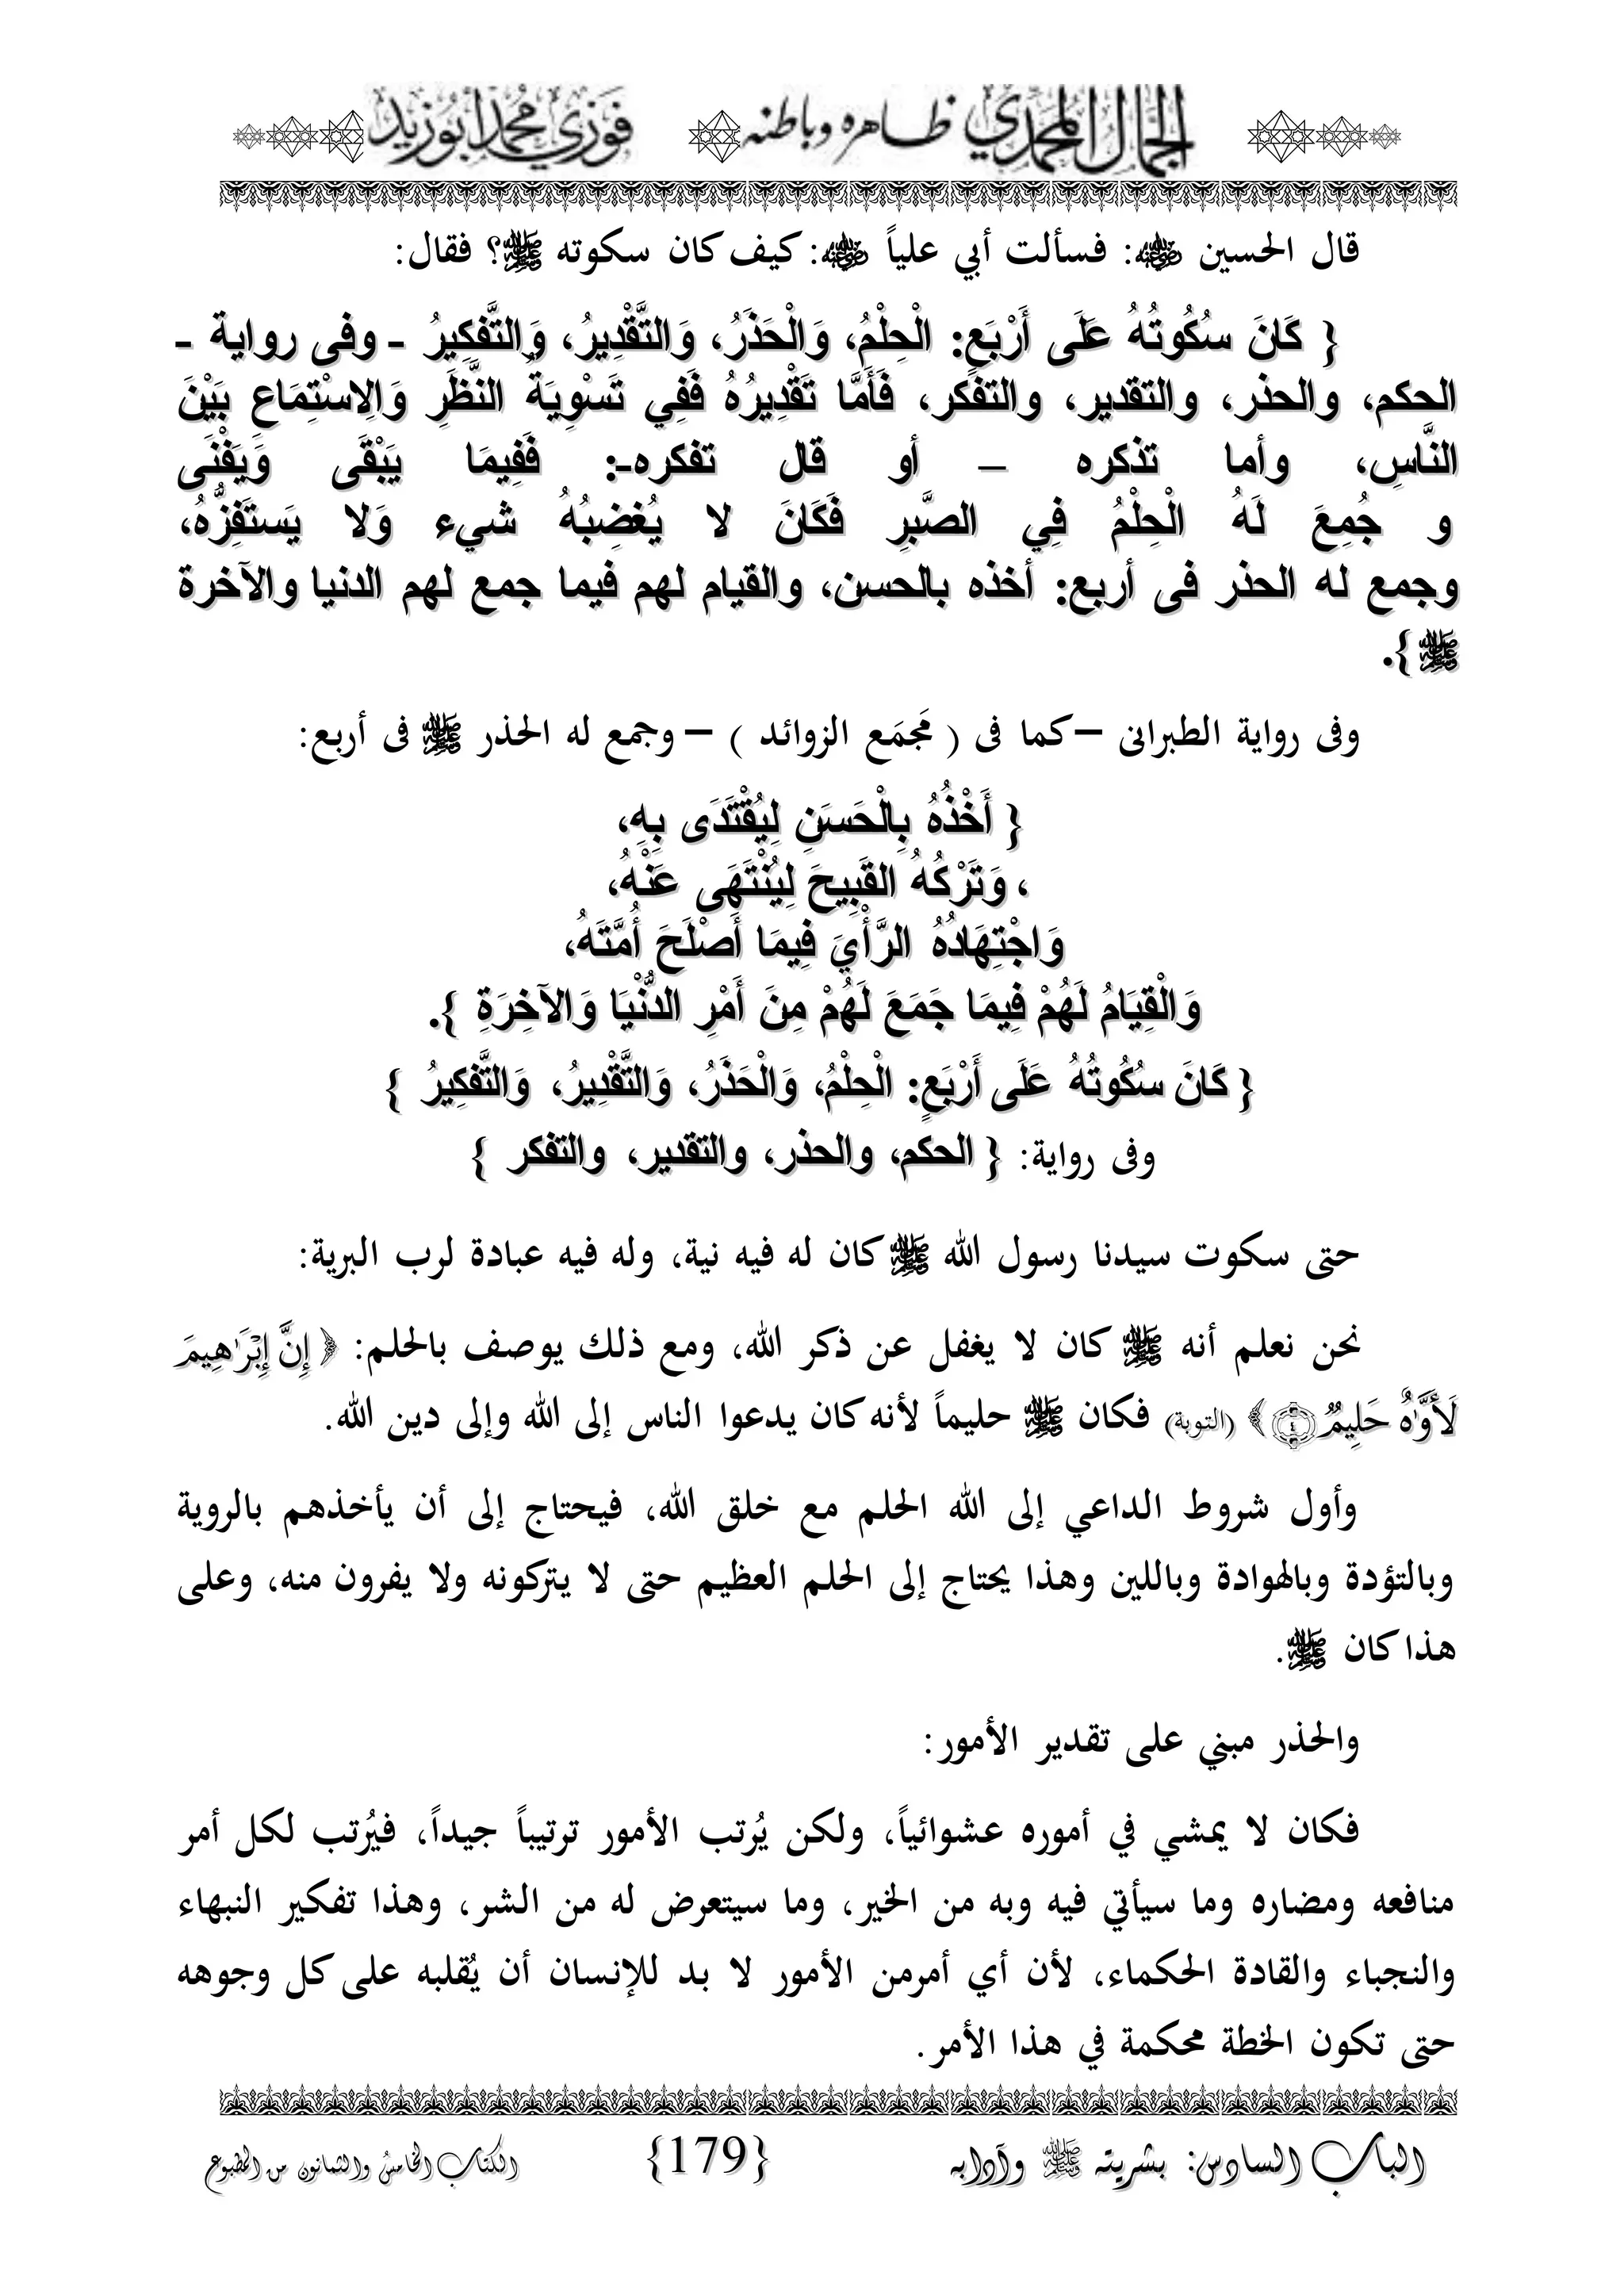 الجمال المحمدي ظاهره وباطنه فوزي محمد أبوزيد
قال الحسين ؓ: فسألت أبي علياً ؓ: كيف كان سكوته ﷺ؟ فقال:
{ كَانَ سُكُوتُهُ عَلَى أَرْبَعٍ: الْحِلْمُ، وَالْحَذَرُ، وَالتَّقْدِيرُ، وَالتَّفْكِيرُ - وفى رواية -
الحكم، والحذر، والتقدير، والتفكر، فَأَمَّا تَقْدِيرُهُ فَفِي تَسْوِيَةُ النَّظَرِ وَالِاسْتِمَاعِ بَيْنَ
النَّاسِ، وأما تذكره – أو قال تفكره-: فَفِيمَا يَبْقَى وَيَفْنَى
و جُمِعَ لَهُ الْحِلْمُ فِي الصَّبرِ فَكَانَ لا يُغضِبُهُ شيء وَلا يَستَفِزُّهُ،
وجمع له الحذر فى أربع: أخذه بالحسن، والقيام لهم فيما جمع لهم الدنيا والآخرة
ﷺ}.
وفى رواية الطبرانى – كما فى ( مَجْمَع الزوائد ) – وجمع له الحذر ﷺ فى أربع:
{ أَخْذُهُ بِالْحَسَنِ لِيُقْتَدَى بِهِ،
، وَتَرْكُهُ القَبِيحَ لِيُنْتَهَى عَنْهُ،
وَاجْتِهَادُهُ الرَّأْيَ فِيمَا أَصْلَحَ أُمَّتَهُ،
وَالْقِيَامُ لَهُمْ فِيمَا جَمَعَ لَهُمْ مِنَ أَمْرِ الدُّنْيَا وَالآخِرَةِ }.
{ كَانَ سُكُوتُهُ عَلَى أَرْبَعٍ: الْحِلْمُ، وَالْحَذَرُ، وَالتَّقْدِيرُ، وَالتَّفْكِيرُ }
وفى رواية: { الحكم، والحذر، والتقدير، والتفكر }
حتى سكوت سيدنا رسول الله ﷺ كان له فيه نية، وله فيه عبادة لرب البرية:
نحن نعلم أنه ﷺ كان لا يغفل عن ذكر الله، ومع ذلك يوصف بالحلم: ﴿ إِنَّ إِبْرَٰهِيمَ
لَأَوَّٰهٌ حَلِيمٌ ﴾ (التوبة) فكان ﷺ حليماً لأنه كان يدعوا الناس إلى الله وإلى دين الله.
وأول شروط الداعي إلى الله الحلم مع خلق الله، فيحتاج إلى أن يأخذهم بالروية
وبالتؤدة وبالهوادة وباللين وهذا يحتاج إلى الحلم العظيم حتى لا يتركونه ولا يفرون منه، وعلى
هذا كان ﷺ.
والحذر مبني على تقدير الأمور:
فكان لا يمشي في أموره عشوائياً، ولكن يُرتب الأمور ترتيباً جيداً، فيُرتب لكل أمر
منافعه ومضاره وما سيأتي فيه وبه من الخير، وما سيتعرض له من الشر، وهذا تفكير النبهاء
والنجباء والقادة الحكماء، لأن أي أمرمن الأمور لا بد للإنسان أن يُقلبه على كل وجوهه
حتى تكون الخطة محكمة في هذا الأمر.
الباب السادس: بشريته ﷺ وآدابه {179} الكتاب الخامس والثمانون من المطبوع